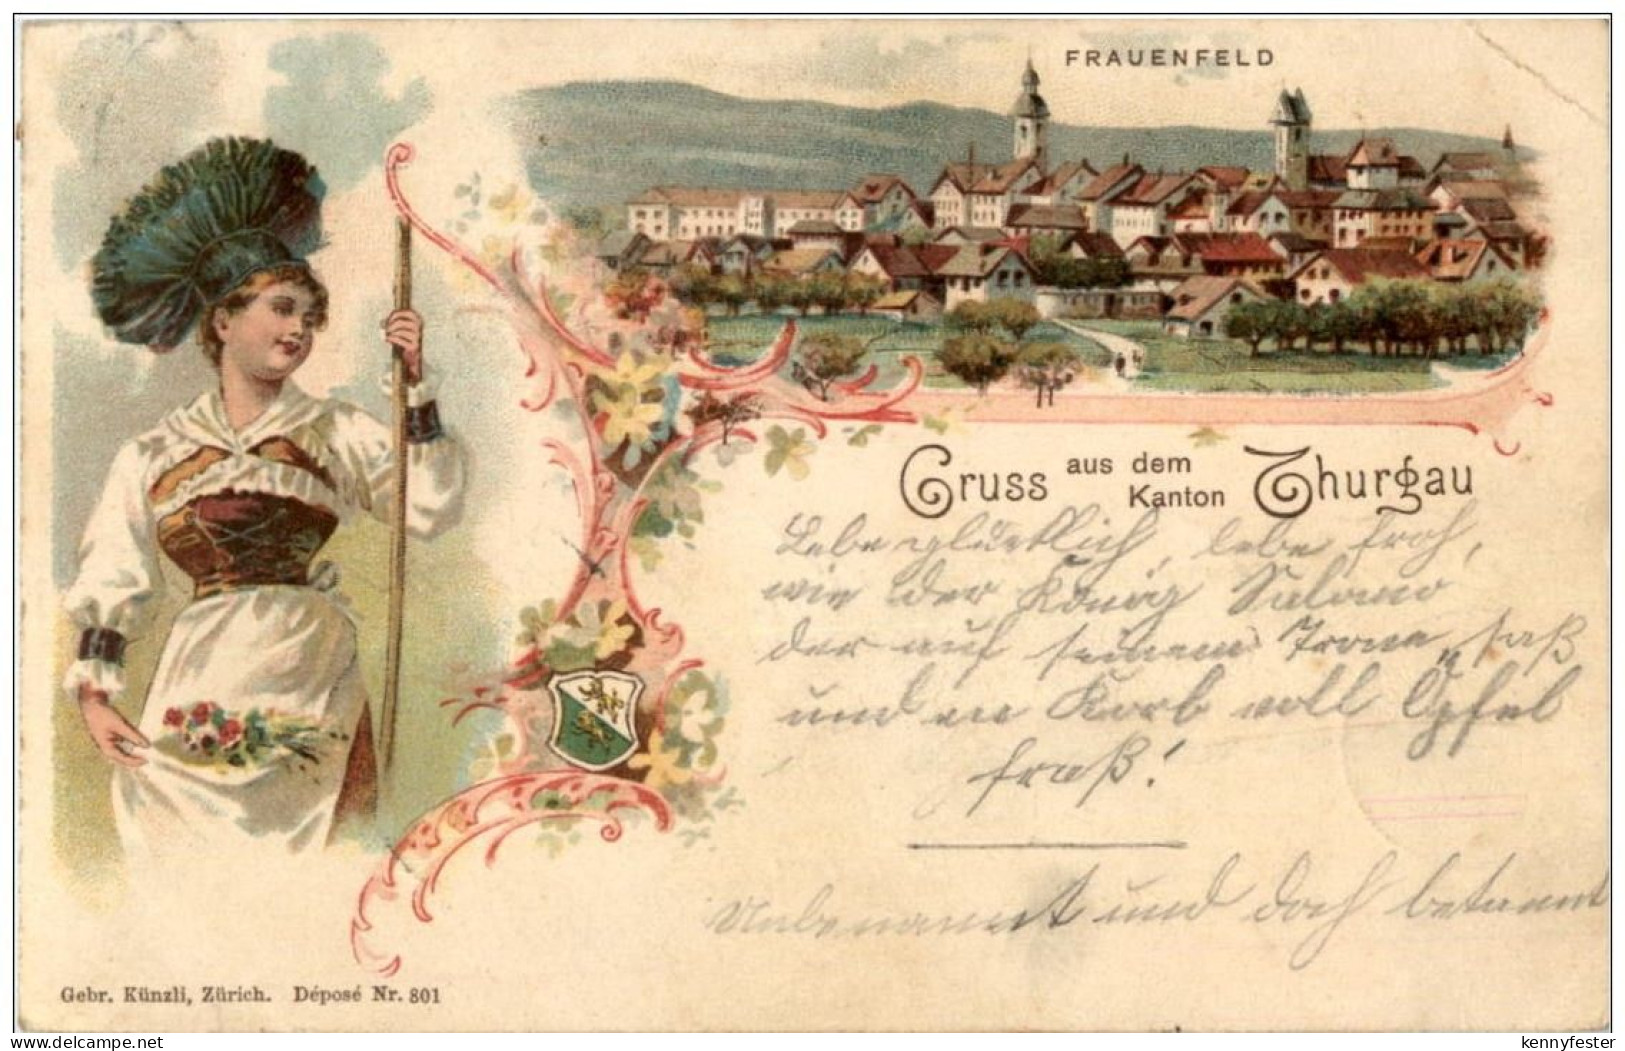 FRAUENFELD
Gruss aus dem Kanton Thurgau
Lebe glücklich, lebe froh,
wie der König Salomo
der auf seinem Trone saß
und en Korb voll Öpfel
fraß!
Unbenannt und doch bekannt
Gebr. Künzli, Zürich. Déposé Nr. 801
delcampe.net
kennyfester